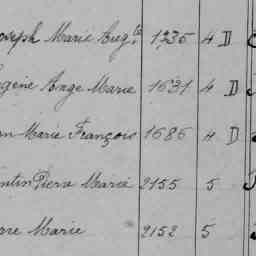 oseph Marie Aug.te 1735 4 D
ugène Ange Marie 1631 4 D
an Marie François 1686 4 D
entin Pierre Marie 2155 5
rre Marie 2152 5